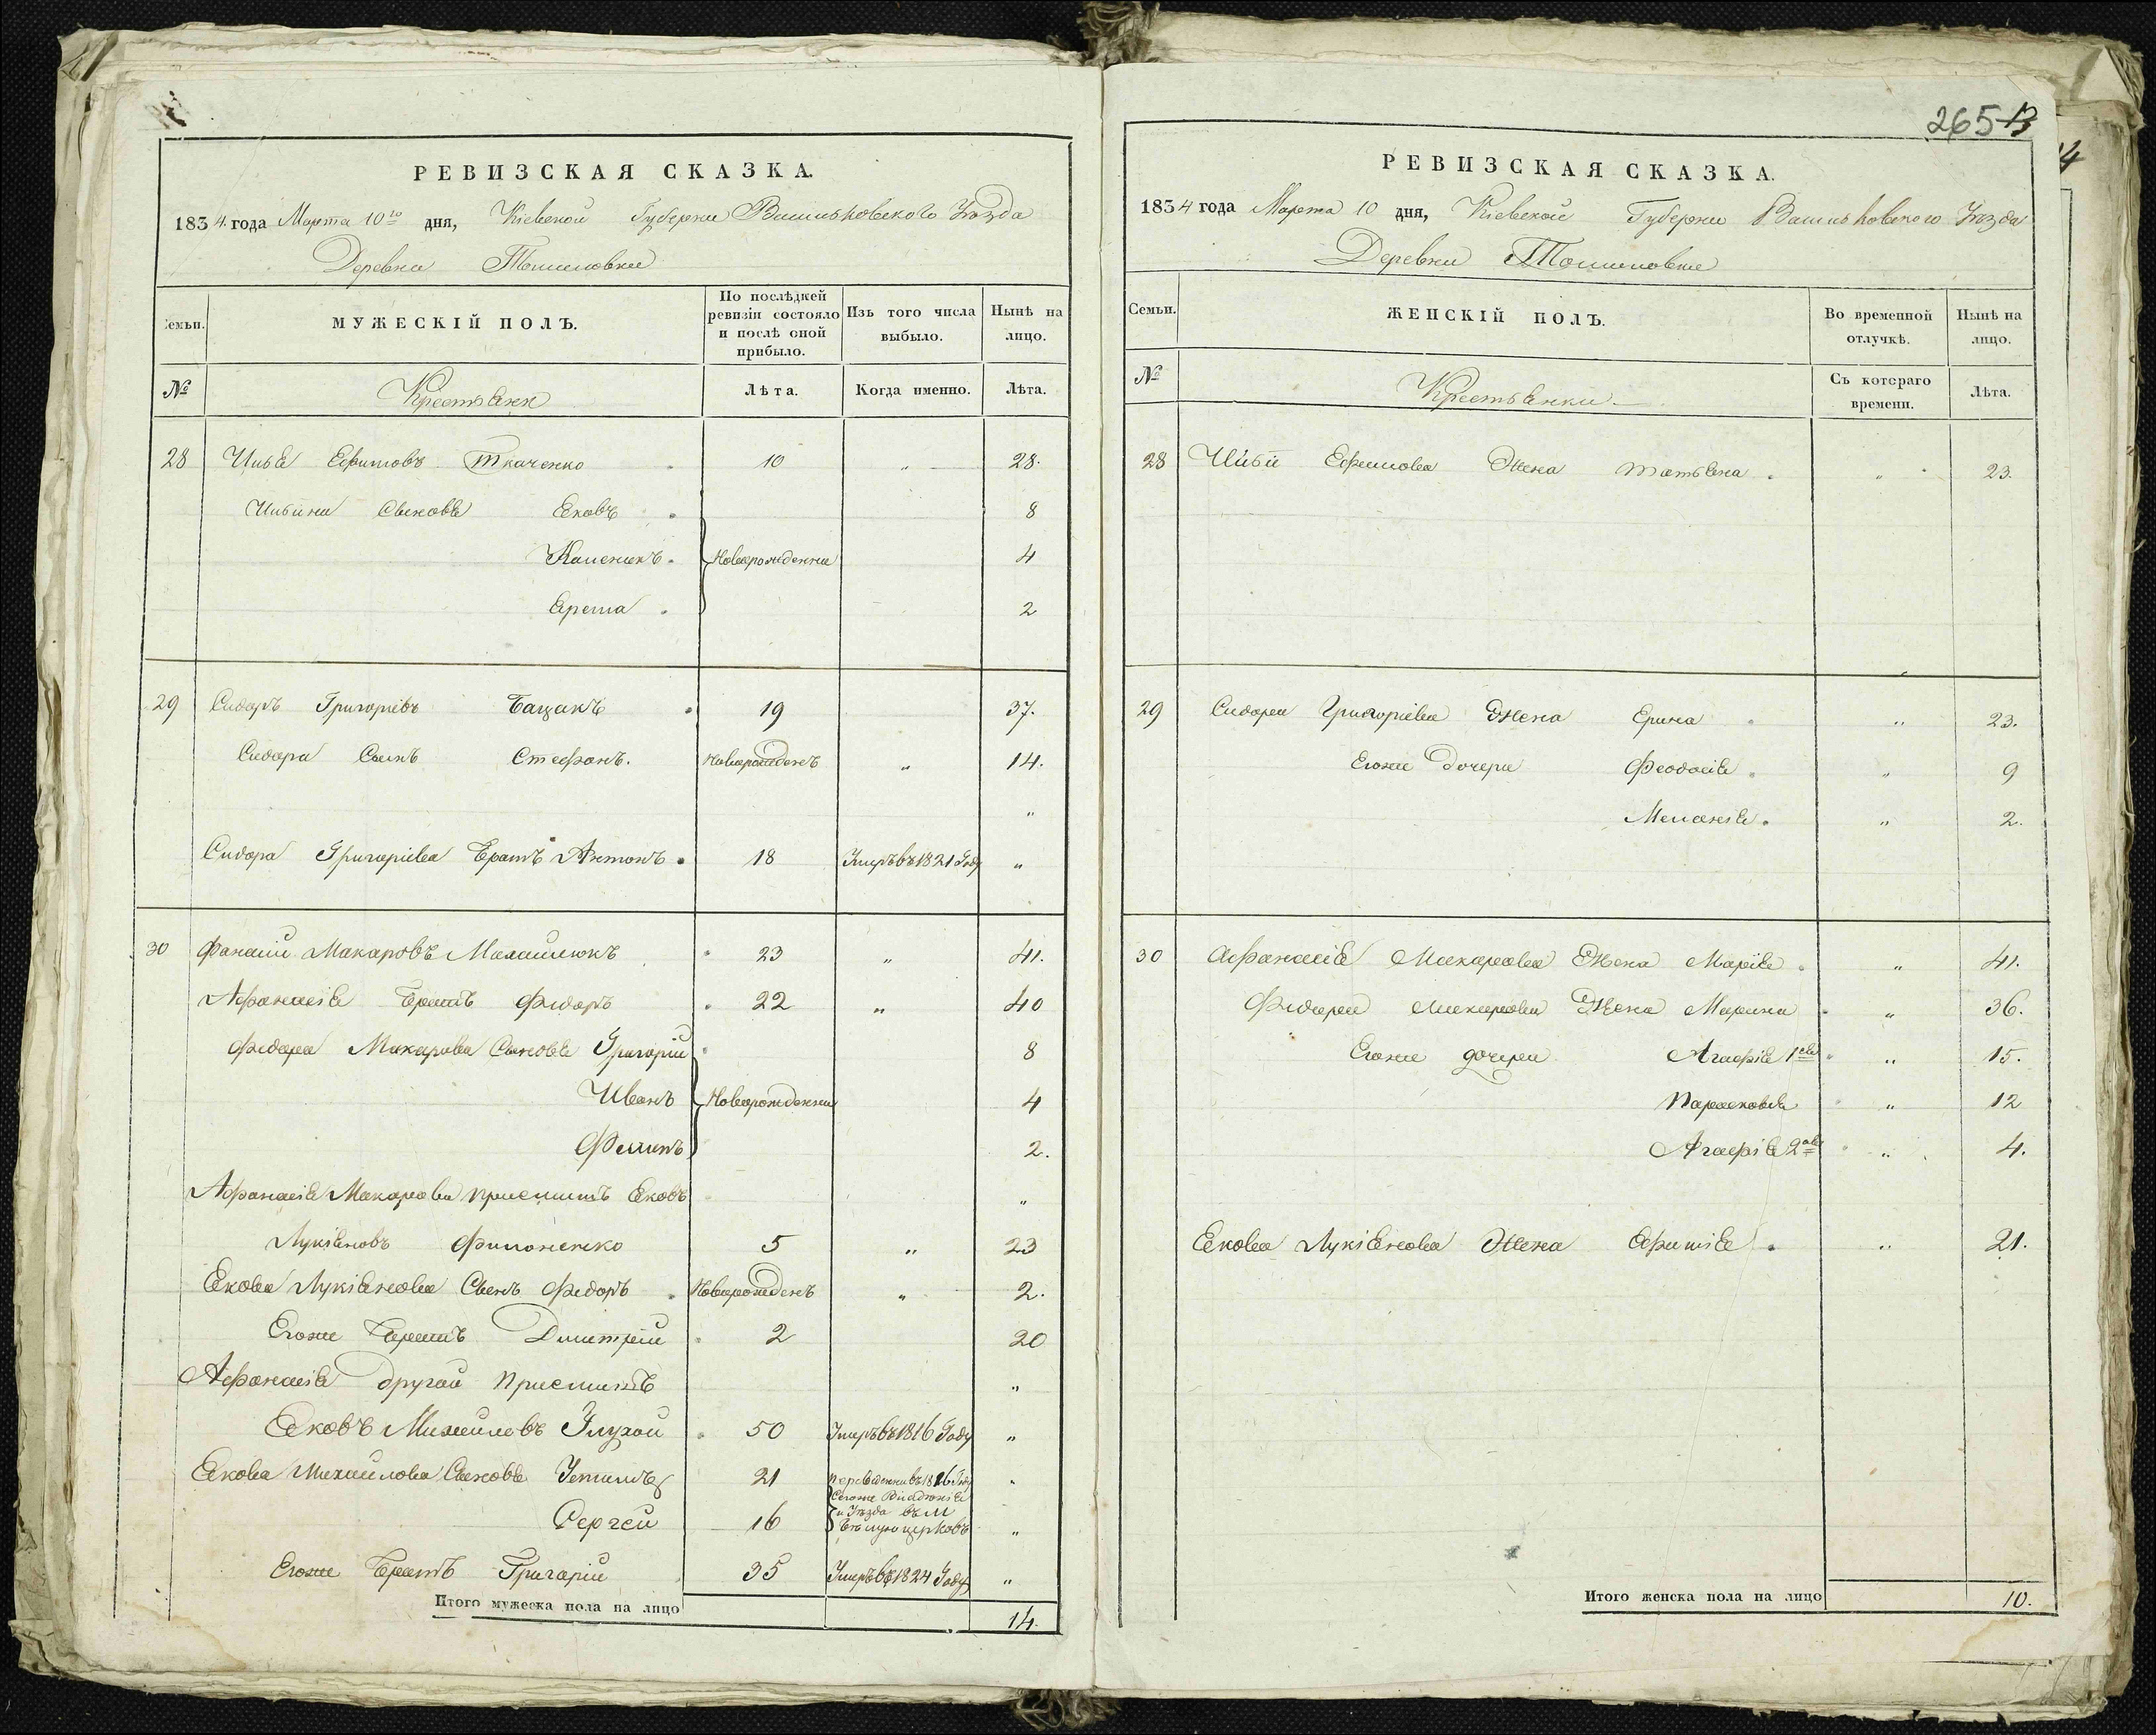 265
РЕВИЗСКАЯ СКАЗКА.
1834. года Марта 10го дня, Кіевской Губерни Васильковского Уѣзда
Деревни Томиловки
Семьи.
МУЖЕСКІЙ ПОЛЪ.
По послѣдней ревизіи состояло и послѣ оной прибыло.
Изъ того числа выбыло.
Нынѣ на лицо.
№ Крестьяне Лѣта. Когда именно. Лѣта.
28 Илья Ефимовъ Ткаченко 10 " 28.
Ильини Сыновья Яковъ 8
Каленикъ. Новорожденни 4
Ярема 2
29 Сидоръ Григоріевъ Бацакъ 19 37.
Сидора Сынъ Стефанъ. Новорожденъ " 14.
"
Сидора Григоріева Братъ Антонъ 18 Умеръ въ 1821 Году "
30 Фанасій Макаровъ 23 " 41.
Афанасія Братъ Фидоръ 22 " 40
Фидора Макарова Сыновья Григорій 8
Иванъ Новорожденни 4
2.
Афанасія Макарова приемишъ Яковъ "
Лукіяновъ Филоненко 5 " 23
Якова Лукіянова Сынъ Федоръ Новорожденъ " 2.
Егоже Братъ Дмитрій 2 20
Афанасія другой приемишъ "
Яковъ Михайловъ Глухой 50 Умеръ въ 1816 Году "
Якова Михайлова Сыновья 21 переведенни въ 1816 Году "
Сергей 16 Сегоже Владѣнія и Уѣзда въ М Бѣлую церковъ "
Егоже Братъ Григорій 35 Умеръ въ 1824 Году "
Итого мужеска пола на лицо 14.
РЕВИЗСКАЯ СКАЗКА.
1834 года Марта 10 дня, Кіевской Губерни Васильковского Уѣзда
Деревни Томиловки
Семьи.
ЖЕНСКІЙ ПОЛЪ.
Во временной отлучкѣ.
Нынѣ на лицо.
№ Крестьянки. Съ котораго времени. Лѣта.
28 Ильи Ефимова Жена Татьяна " 23.
29 Сидора Григоріева Жена Ерина " 23.
Егоже Дочери Феодосія " 9
Меланія " 2.
30 Афанасія Макарова Жена Марія " 41.
Фидора Макарова Жена Марина " 36.
Егоже дочери Агафія 1ая " 15.
Парасковія " 12
Агафія 2ая " 4.
Якова Лукіянова Жена Ефимія " 21.
Итого женска пола на лицо 10.